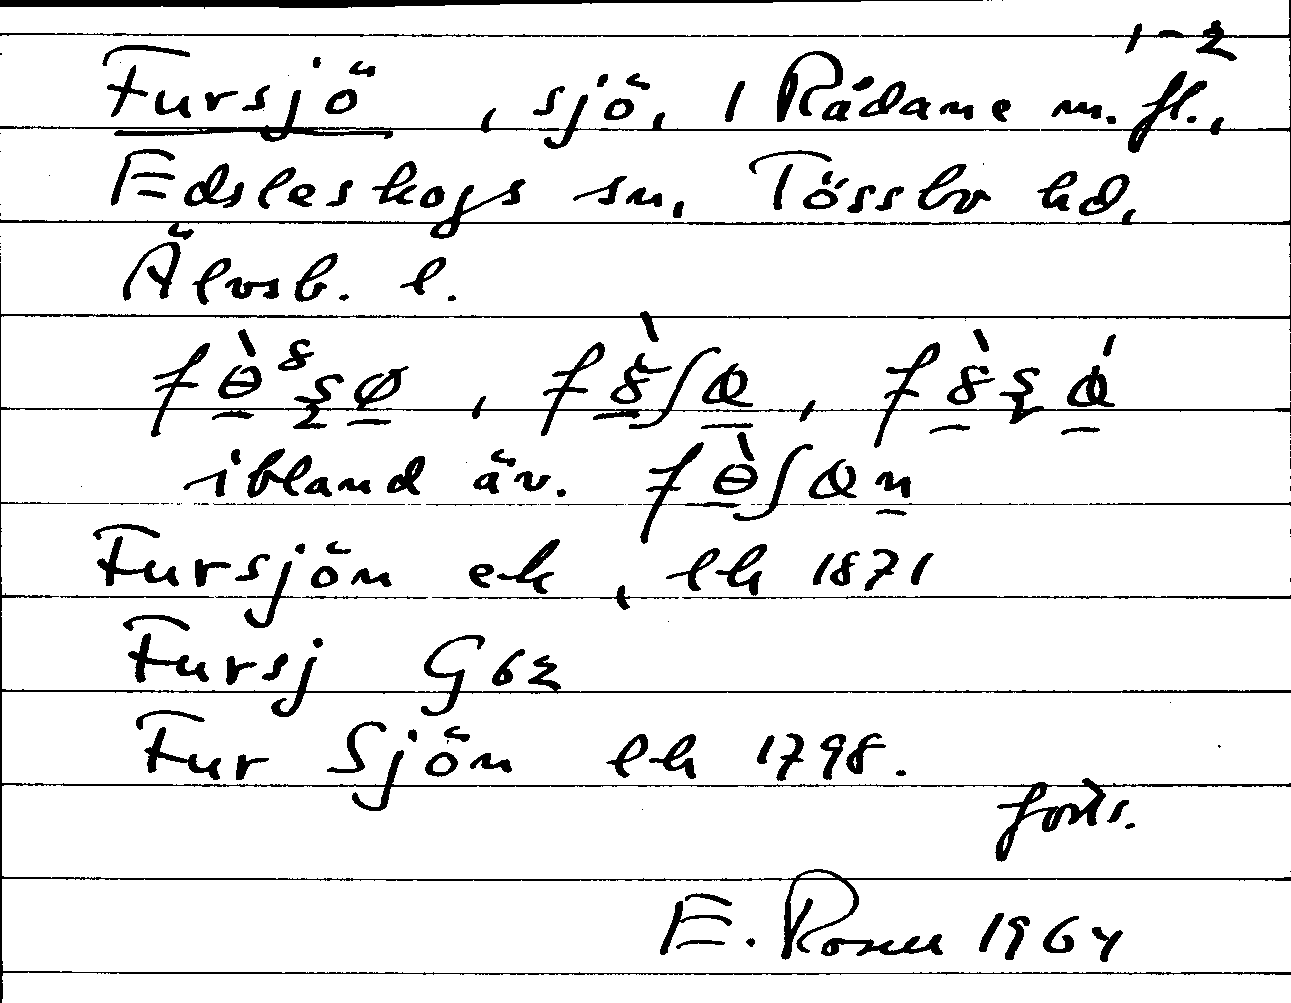 1-2
Fursjö, sjö, 1 Rådane m. fl.,
Edsleskogs sn, Tössbo hd,
Älvsb. l.
ibland äv.
Fursjön ek, lk 1871
Fursj G62
Fur Sjön lk 1798.
forts.
E. Rosell 1964